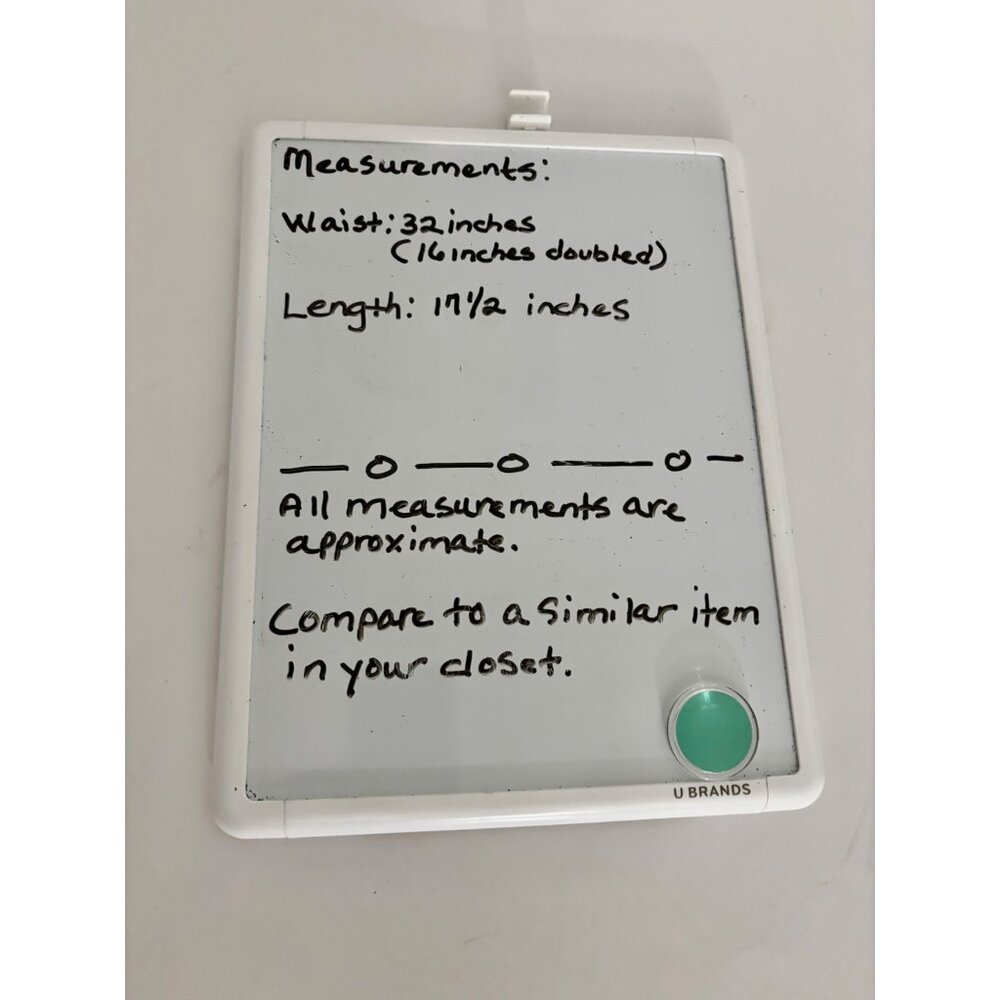 Measurements:
Waist: 32 inches
(16 inches doubled)
Length: 17 1/2 inches
— o — o — o —
All measurements are
approximate.
Compare to a similar item
in your closet.
U BRANDS